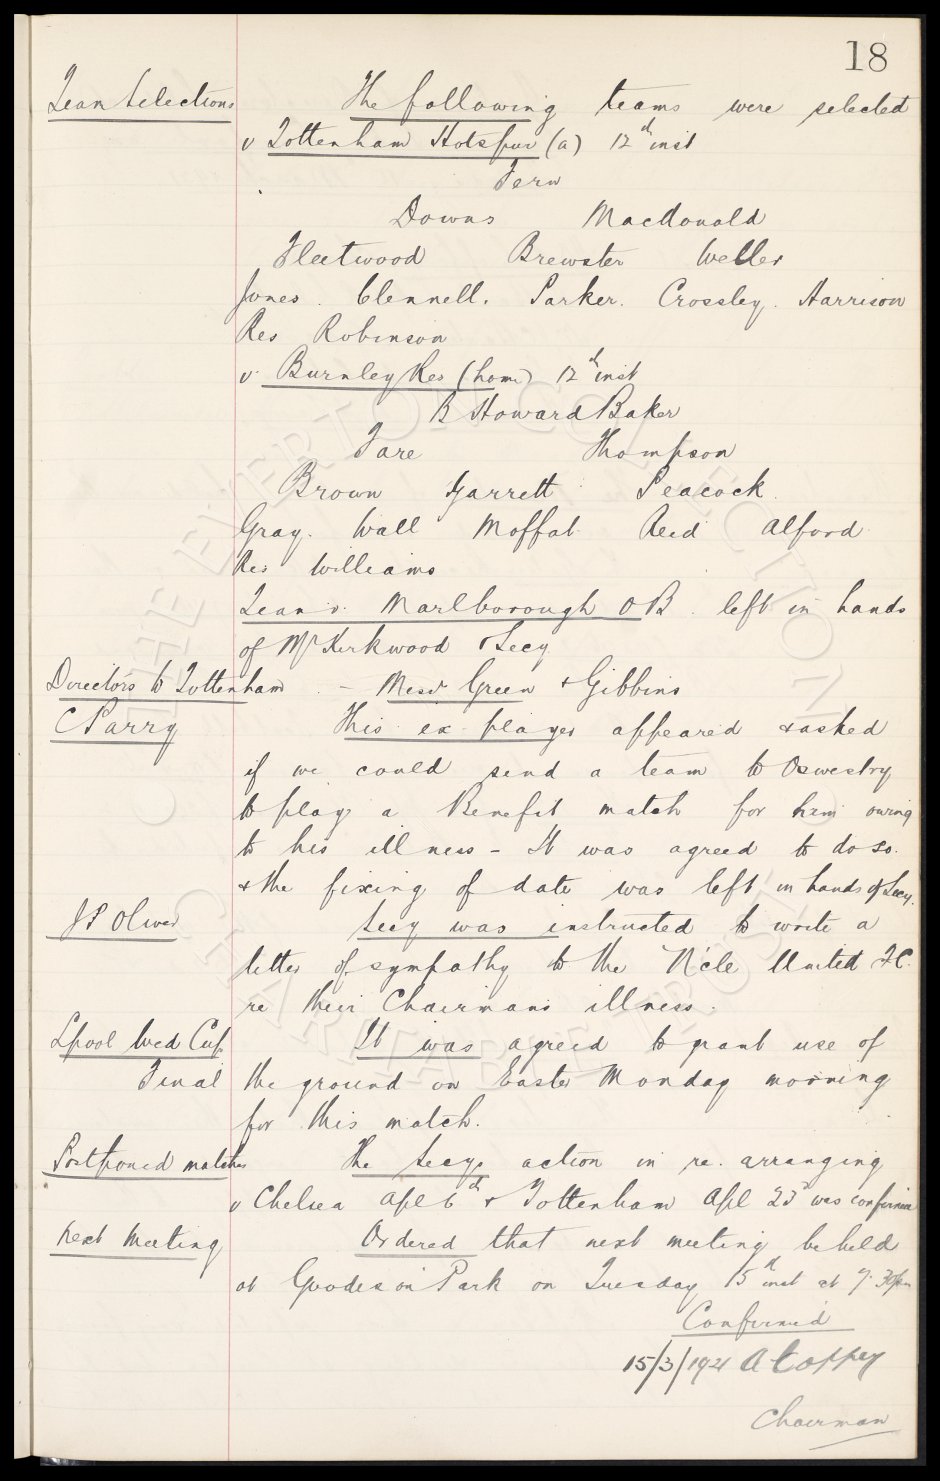 18
Team Selections The following teams were selected
v Tottenham Hotspur (a) 12th inst
Fern
Downs MacDonald
Fleetwood Brewster Weller
Jones. Clennell. Parker. Crossley. Harrison
Res Robinson
v Burnley Res (home) 12th inst
B Howard Baker
Fare Thompson
Brown Garrett Peacock
Gray. Wall Moffat Reid Alford
Res Williams
Team v. Marlborough OB. left in hands
of Mr Kirkwood & Secy
Directors to Tottenham - Messrs Green & Gibbins
C Parry This ex player appeared & asked
if we could send a team to Oswestry
to play a Benefit match for him owing
to his illness - It was agreed to do so.
& the fixing of date was left in hands of Secy.
JP Oliver Secy was instructed to write a
letter of sympathy to the N'cle United F.C.
re their Chairmans illness.
Lpool Wed Cup It was agreed to grant use of
Final the ground on Easter Monday morning
for this match.
Postponed matches The Secys action in re. arranging
v Chelsea Apl 6th & Tottenham Apl 23rd was confirmed
Next Meeting Ordered that next meeting be held
at Goodison Park on Tuesday 15th inst at 7.30pm
Confirmed
15/3/1921 A Coffey
Chairman
THE EVERTON COLLECTION
CHARITABLE TRUST